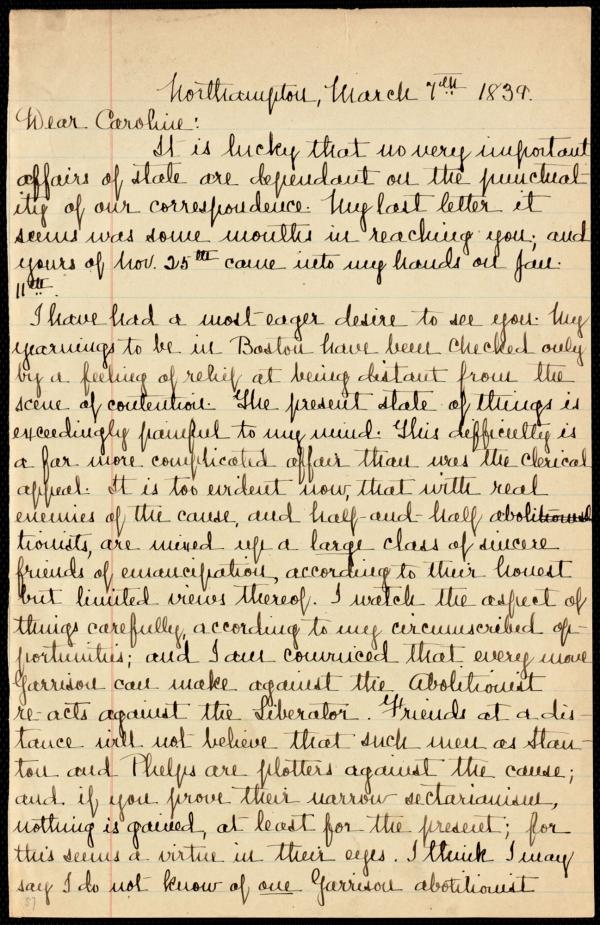 Northampton, March 7th 1839.
Dear Caroline:
It is lucky that no very important
affairs of state are dependant on the punctual-
ity of our correspondence. My last letter it
seems was some months in reaching you; and
yours of Nov. 25th came into my hands on Jan.
11th.
I have had a most eager desire to see you. My
yearnings to be in Boston have been checked only
by a feeling of relief at being distant from the
scene of contention. The present state of things is
exceedingly painful to my mind. This difficulty is
a far more complicated affair than was the clerical
appeal. It is too evident now, that with real
enemies of the cause, and half-and-half aboli
tionists, are mixed up a large class of sincere
friends of emancipation, according to their honest
but limited views thereof. I watch the aspect of
things carefully, according to my circumscribed op-
portunities; and I am convinced that every move
Garrison can make against the Abolitionist
re-acts against the Liberator. Friends at a dis-
tance will not believe that such men as Stan-
ton and Phelps are plotters against the cause;
and if you prove their narrow sectarianism,
nothing is gained, at least for the present; for
this seems a virtue in their eyes. I think I may
say I do not know of one Garrison abolitionist